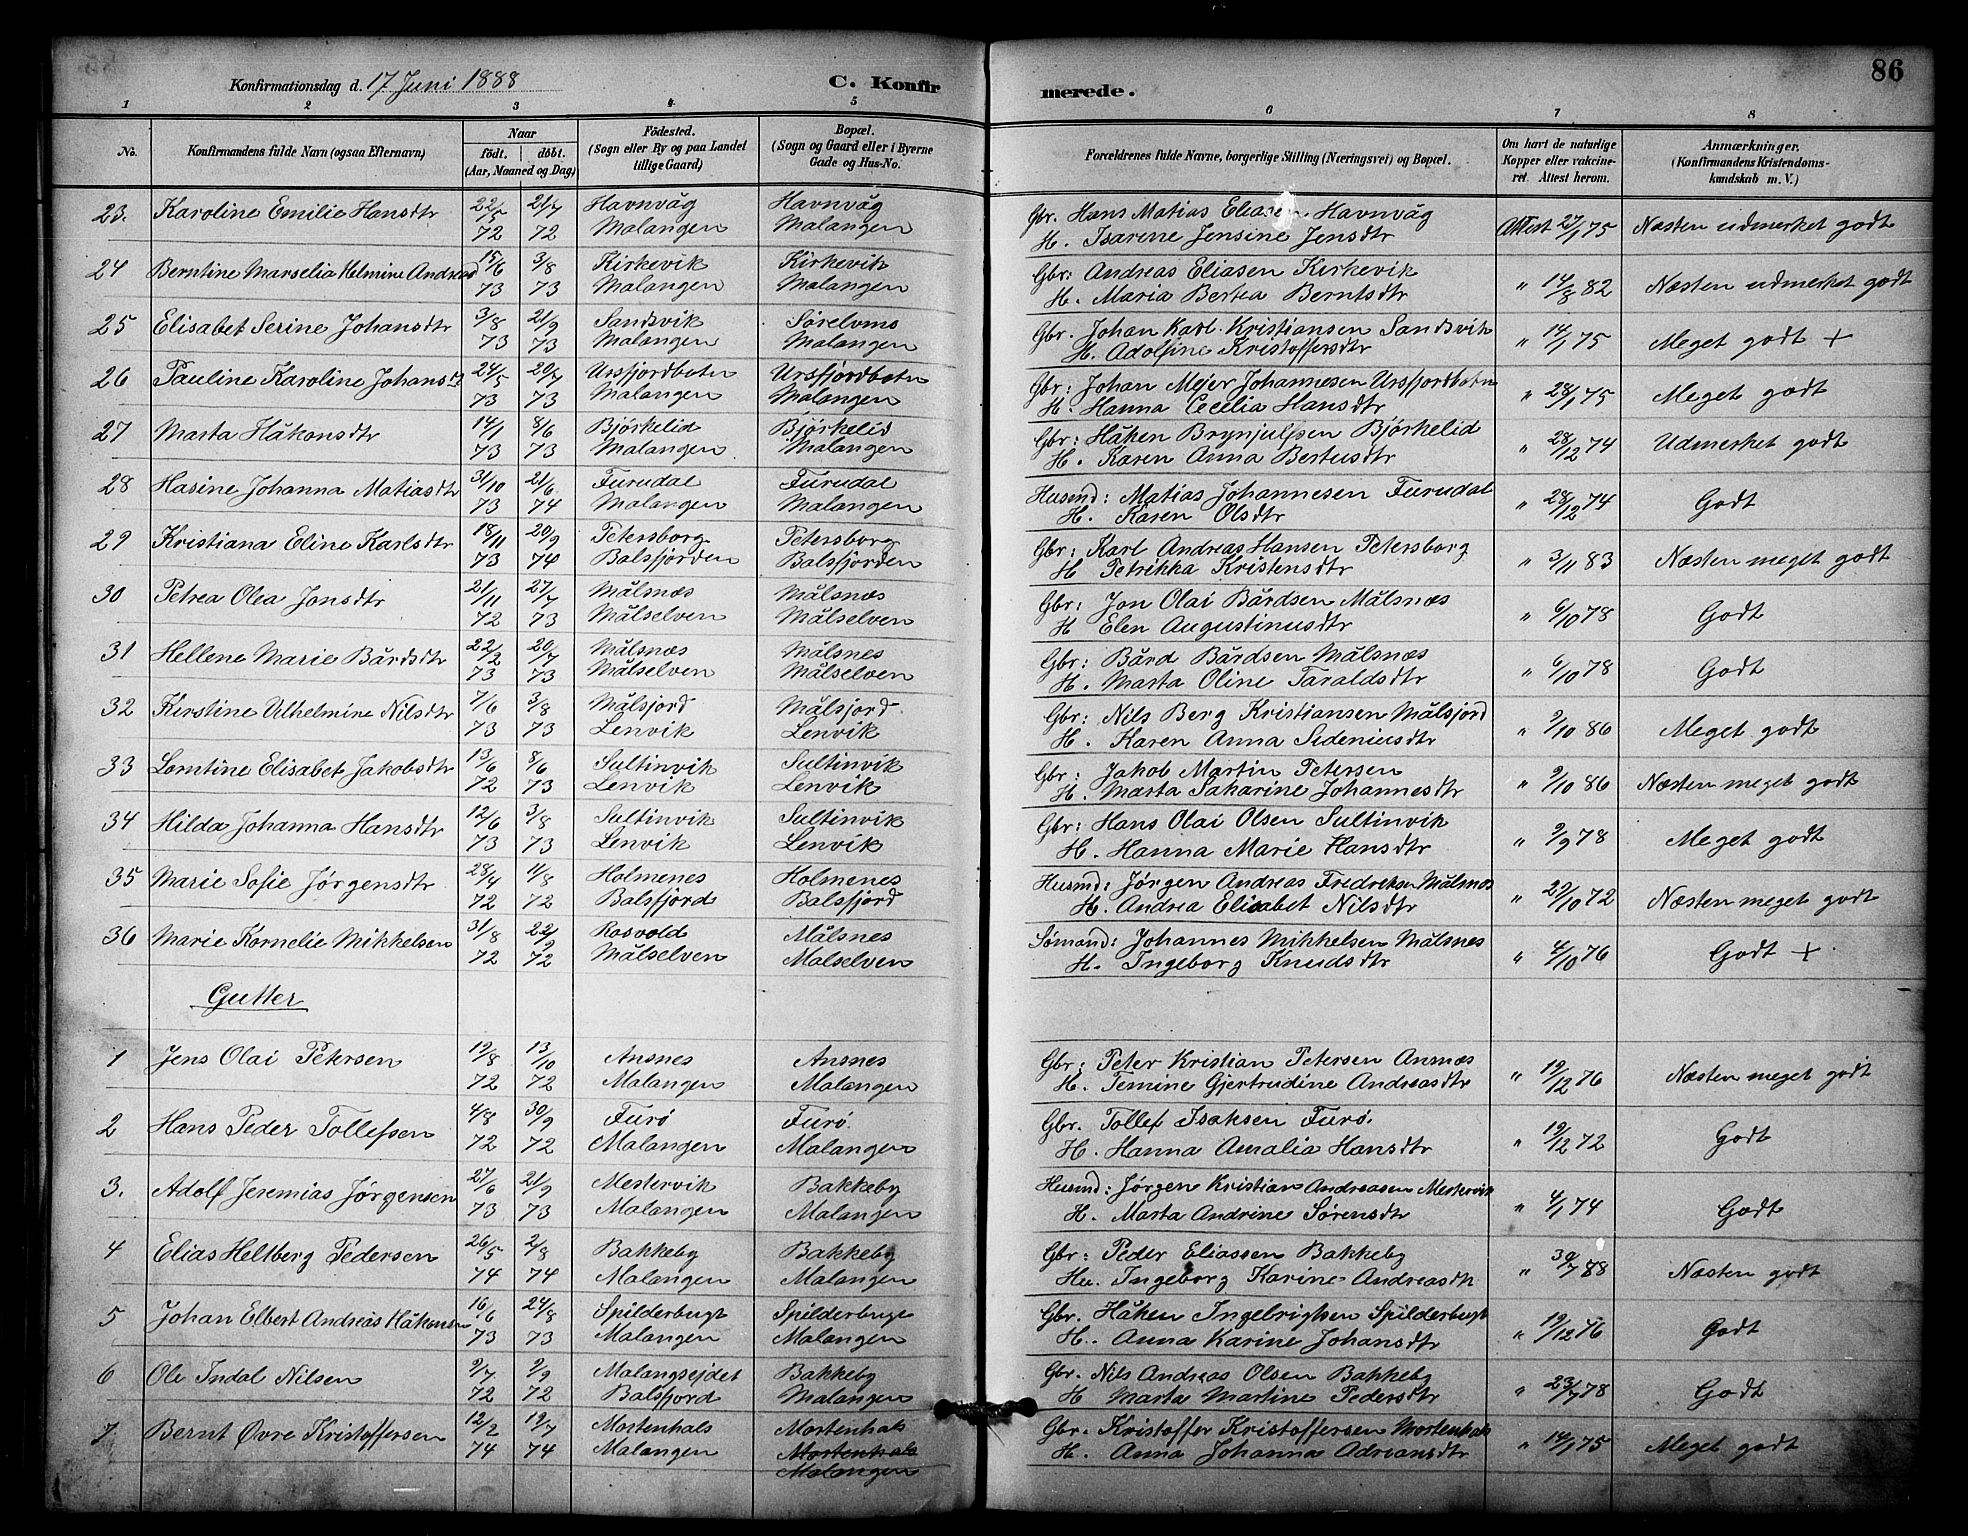 86
Konfirmationsdag d. 17 Juni 1888
C. Konfirmerede.
1 2 3 4 5 6 7 8
No.
Konfirmandens fulde Navn (ogsaa Efternavn)
Naar
födt. döbt.
(Aar, Maaned og Dag)
Födested.
(Sogn eller By og paa Landet
tillige Gaard)
Bopæl.
(Sogn og Gaard eller i Byerne
Gade og Hus-No.
Forældrenes fulde Navne, borgerlige Stilling (Næringsvei) og Bopæl.
Om havt de naturlige
Kopper eller vakcine-
ret. Attest herom.
Anmærkninger.
(Konfirmandens Kristendoms-
kundskab m. V.)
23. Karoline Emilie Hansdtr 22/5 21/7 Havnvåg Havnvåg Gbr. Hans Matias Eliasen Havnvåg Attest 27/1 75 Næsten udmerket godt
72 72 Malangen Malangen H. Isarene Jensine Jensdtr
24 Berntine Marselia Helmine Andreasd 15/6 3/8 Kirkevik Kirkevik Gbr: Andreas Eliasen Kirkevik " 14/8 82 Næsten udmerket godt
73 73 Malangen Malangen H. Maria Bertea Berntsdtr
25 Elisabet Serine Johansdtr 3/8 21/9 Sandsvik Sørelvms Gbr. Johan Karl Kristiansen Sandsvik " 14/1 75 Meget godt +
73 73 Malangen Malangen H. Adolfine Kristoffersdtr
26 Pauline Karoline Johansd 24/5 20/7 Ursfjordbotn Ursfjordbotn Gbr: Johan Mejer Johannesen Ursfjordbotn " 28/1 75 Meget godt
73 73 Malangen Malangen H. Hanna Cecelia Hansdtr
27 Marta Håkonsdtr 14/1 8/6 Bjørkelid Bjørkelid Gbr: Håken Brynjulfsen Bjørkelid " 28/12 74 Udmerket godt
73 73 Malangen Malangen H. Karen Anna Bertusdtr
28 Hasine Johanna Matiasdtr 31/10 21/6 Furudal Furudal Husmd: Matias Johannesen Furudal " 28/12 74 Godt
73 74 Malangen Malangen H. Karen Olsdtr
29 Kristiana Eline Karlsdtr 18/11 20/9 Petersborg Petersborg Gbr: Karl Andreas Hansen Petersborg " 3/11 83 Næsten meget godt
73 74 Balsfjorden Balsfjorden H Petrikka Kristensdtr
30 Petrea Olea Jonsdtr 21/11 27/7 Målsnæs Målsnæs Gbr: Jon Olai Bårdsen Målsnæs " 6/10 78 Godt
72 73 Målselven Målselven H Elen Augustinusdtr
31 Hellene Marie Bårdsdtr 22/2 20/7 Målsnæs Målsnes Gbr: Bård Bårdsen Målsnæs " 6/10 78 Godt
73 73 Målselven Målselven H. Marta Oline Taraldsdtr
32 Kirstine Vilhelmine Nilsdtr 7/6 3/8 Målsjord Målsjord Gbr: Nils Berg Kristiansen Målsjord " 9/10 86 Meget godt
73 73 Lenvik Lenvik H. Karen Anna Sideniusdtr
33 Lorntine Elisabet Jakobsdtr 13/6 8/6 Sultinvik Sultinvik Gbr: Jakob Martin Petersen " 9/10 86 Næsten meget godt
72 73 Lenvik Lenvik H. Marta Sakarine Johannesdtr
34 Hilda Johanna Hansdtr 12/6 3/8 Sultinvik Sultinvik Gbr: Hans Olai Olsen Sultinvik " 9/9 78 Meget godt
73 73 Lenvik Lenvik H. Hanna Marie Hansdtr
35 Marie Sofie Jørgensdtr 28/4 11/8 Holmenes Holmenes Husmd: Jørgen Andreas Fredriksen Målsnæs " 29/10 72 Næsten meget godt
72 72 Balsfjord Balsfjord H. Andrea Elisabet Nilsdtr
36 Marie Kornelie Mikkelsen 31/8 22/9 Rosvold Målsnes Sømand: Johannes Mikkelsen Målsnes " 4/10 76 Godt +
72 72 Målselven Målselven H. Ingeborg Knudsdtr
Gutter
1 Jens Olai Petersen 19/8 13/10 Ansnes Ansnes Gbr: Peter Kristian Petersen Ansnæs " 19/12 76 Næsten meget godt
72 72 Malangen Malangen H. Temine Gjertrudine Andreasdtr
2 Hans Peder Tollefsen 4/8 30/9 Furø Furø. Gbr. Tollef Isaksen Furø. " 19/12 72 Godt
72 72 Malangen Malangen H. Hanna Amalia Hansdtr
3. Adolf Jeremias Jørgensen 27/6 21/9 Mestervik Bakkeby Husmd: Jørgen Kristian Andreasen Mestervik " 4/1 74 Godt
73 73 Malangen Malangen H. Marta Andrine Sørensdtr
4 Elias Heltberg Pedersen 26/5 2/8 Bakkeby Bakkeby Gbr: Peder Eliassen Bakkeby " 30/7 88 Næsten godt
74 74 Malangen Malangen Hu. Ingeborg Karine Andreasdt
5 Johan Elbert Andreas Håkonsen 16/6 24/8 Spilderbugt Spilderbugt Gbr. Håken Ingelrigtsen Spilderbugt " 19/12 76 Godt
73 73 Malangen Malangen H. Anna Karine Johansdtr
6 Ole Indal Nilsen 9/7 2/9 Malangsejdet Bakkeby Gbr. Nils Andreas Olsen Bakkeby " 23/7 78 Godt
72 72 Balsfjord Malangen H Marta Martine Pedersdtr
7. Bernt Øvre Kristoffersen 12/2 19/7 Mortenhals Mortenhals Gbr. Kristoffer Kristoffersen Mortenhals " 14/1 75 Meget godt
74 74 Malangen Mortenhals H. Anna Johanna Adriansdtr
Malangen